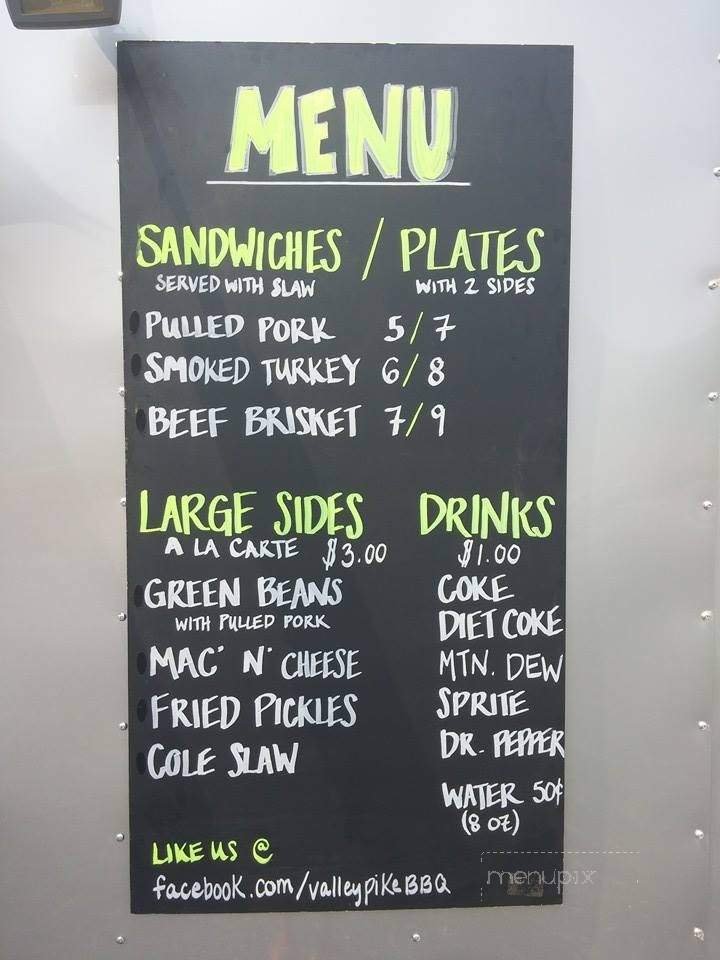 MENU
SANDWICHES / PLATES
SERVED WITH SLAW WITH 2 SIDES
PULLED PORK 5/7
SMOKED TURKEY 6/8
BEEF BRISKET 7/9
LARGE SIDES
A LA CARTE $3.00
GREEN BEANS
WITH PULLED PORK
MAC' N' CHEESE
FRIED PICKLES
COLE SLAW
DRINKS
$1.00
COKE
DIET COKE
MTN. DEW
SPRITE
DR. PEPPER
WATER 50¢
(8 OZ)
LIKE US @
facebook.com/valleypikeBBQ
menupix